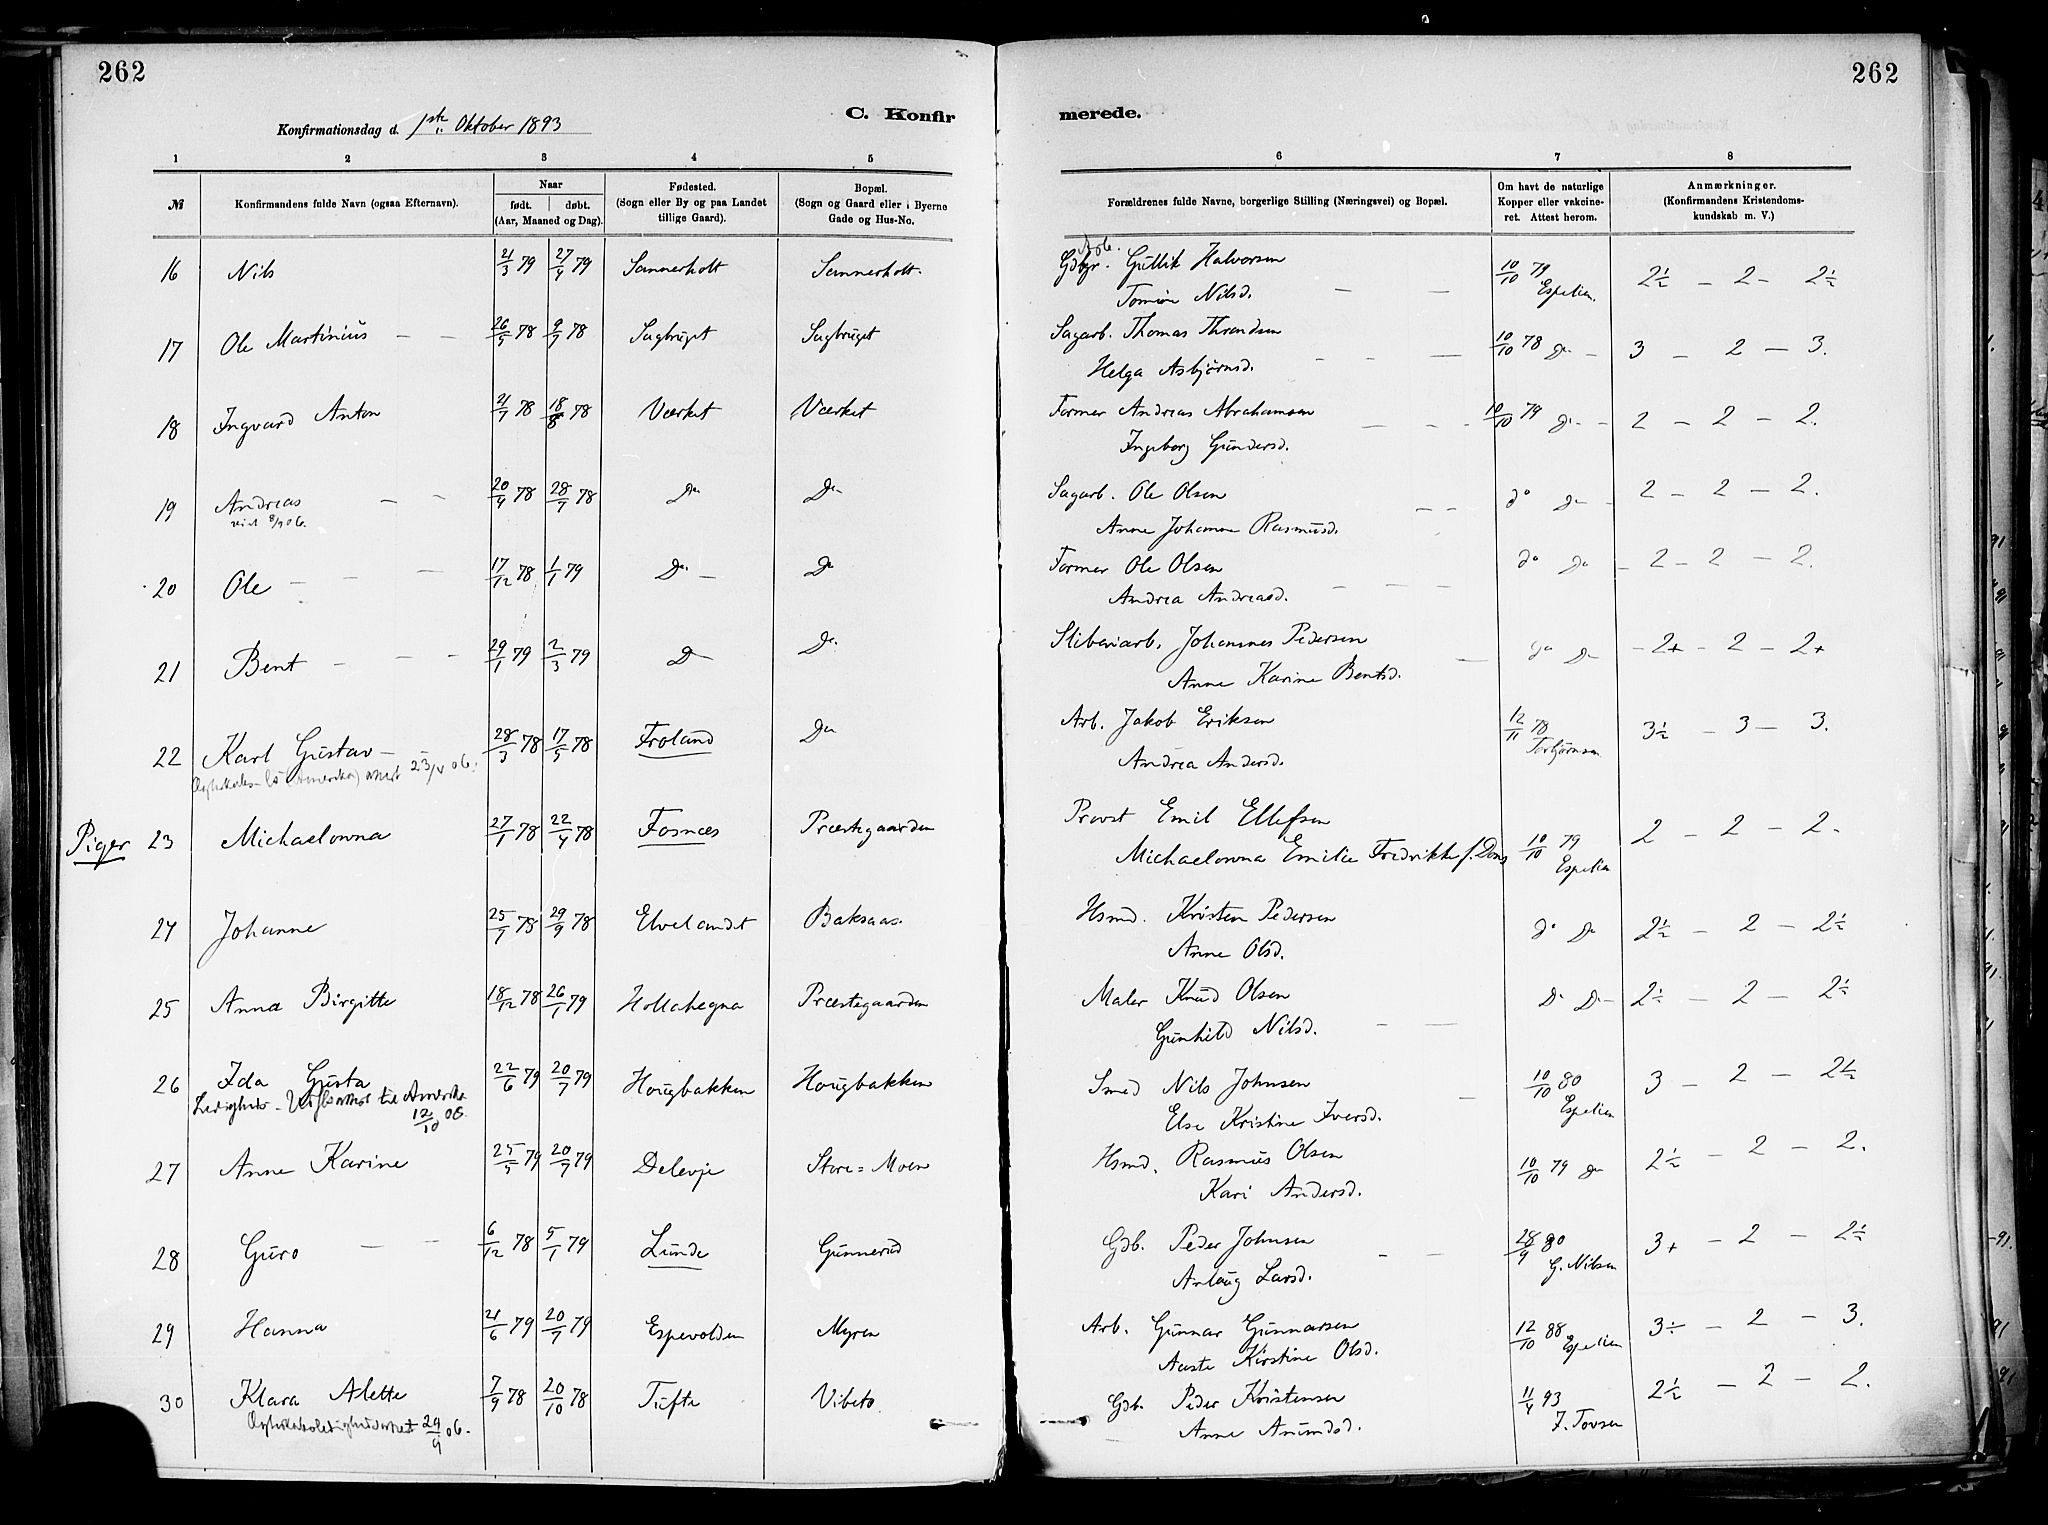 262
262
C. Konfir
merede.
Konfirmationsdag d. 1ste Oktober 1893
1 2 3 4 5 6 7 8
№ Konfirmandens fulde Navn (ogsaa Efternavn). Naar født. døbt. (Aar, Maaned og Dag). Fødested. (Sogn eller By og paa Landet tillige Gaard). Bopæl. (Sogn og Gaard eller i Byerne Gade og Hus-No. Forældrenes fulde Navne, borgerlige Stilling (Næringsvei) og Bopæl. Om havt de naturlige Kopper eller vakcineret. Attest herom. Anmærkninger. (Konfirmandens Kristendomskundskab m. V.)
16 Nils 21/3 79 27/4 79 Sannerholt Sannerholt. Gdbgr. Arb. Gullik Halvorsen 10/10 79 Espelien. 2½ – 2 – 2½
Tomine Nilsd. — —
17 Ole Martinius — — 26/5 78 9/7 78 Sagbruget Sagbruget Sagarb. Thomas Throndsen 10/10 78 Do – 3 – 2 – 3.
Helga Asbjørnsd. - - —
18 Ingvard Anton 21/7 78 18/8 78 Værket Værket Former Andreas Abrahamsen 10/10 79 Do – 2 – 2 – 2.
Ingeborg Gundersd.
19 Andreas — – 20/4 78 28/7 78 Do Do Sagarb. Ole Olsen do Do – 2 – 2 – 2.
8/9 06.
Anne Johanne Rasmusd.
20 Ole — — — 17/12 78 1/1 79 Do – Do Former Ole Olsen do Do – 2 – 2 – 2.
Andrea Andreasd. — — —
21 Bent — — — 29/1 79 2/3 79 Do Do Sliberiarb. Johannes Pedersen do Do – 2+ – 2 – 2+
Anne Karine Bentsd.
22 Karl Gustav – 28/3 78 17/5 78 Froland Do Arb. Jakob Eriksen 12/11 78 Torbjørnsen 3½ – 3 – 3.
(Amerika) attest 23/4 06. Andrea Andersd.
Piger 23 Michaelowna 27/1 78 22/4 78 Fosnæs Præstegaarden Provst Emil Ellefsen 10/10 79 Espelien 2 – 2 – 2.
Michaelowna Emilie Fredrikke f. Dons
24 Johanne 25/7 78 29/9 78 Elvelandet Baksaas. Hsmd. Kristen Pedersen do Do 2½ – 2 – 2½
Anne Olsd.
25 Anna Birgitte 18/12 78 26/1 79 Hollahegna Præstegaarden Maler Knud Olsen Do Do – 2÷ – 2 – 2½
Gunhild Nilsd. – —
26 Ida Gusta 22/6 79 20/7 79 Hougbakken Hougbakken Smed Nils Johnsen 10/10 80 Espelien 3 – 2 – 2½
til Amerika 12/10 06. Else Kristine Iversd.
27 Anne Karine 25/5 79 20/7 79 Delevje Store=Moen Hsmd. Rasmus Olsen 10/10 79 Do 2½ – 2 – 2.
Kari Andersd.
28 Guro — – 6/12 78 5/1 79 Lunde Gunnerud Gdb. Peder Johnsen 28/9 80 G. Nilsen 3+ – 2 – 2½
Anlaug Larsd.
29 Hanna 21/6 79 20/7 79 Espevolden Myren Arb. Gunnar Gunnarsen 12/10 88 Espelien 3÷ – 2 – 3.
Aaste Kirstine Olsd.
30 Klara Alette 7/9 78 20/10 78 Tufte Vibeto Gdb. Peder Kristensen 11/4 93 J. Tovsen 2½ – 2 – 2.
29/9 06. Anne Anundsd.